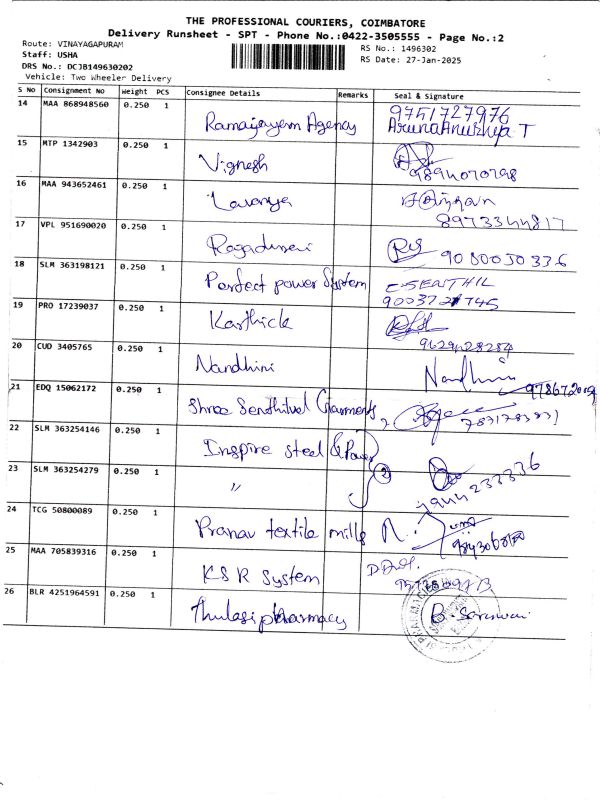 THE PROFESSIONAL COURIERS, COIMBATORE
Delivery Runsheet - SPT - Phone No.:0422-3505555 - Page No.:2
Route: VINAYAGAPURAM
RS No.: 1496302
Staff: USHA
RS Date: 27-Jan-2025
DRS No.: DCJB149630202
Vehicle: Two Wheeler Delivery
S No Consignment No Weight PCS Consignee Details Remarks Seal & Signature
14 MAA 868948560 0.250 1 Ramajayam Agency 9751727976
15 MTP 1342903 0.250 1 Vignesh 9894070798
16 MAA 943652461 0.250 1 Lavanya 8973344817
17 VPL 951690020 0.250 1 Ragadurai
18 SLM 363198121 0.250 1 Perfect power System C-SENTHIL
19 PRO 17239037 0.250 1 Karthick
20 CUD 3405765 0.250 1 Nandhini Nandhini
21 EDQ 15062172 0.250 1 Shree Senthilvel Garments
22 SLM 363254146 0.250 1 Inspire steel & Power
23 SLM 363254279 0.250 1 " 2
24 TCG 50800089 0.250 1 Pranav textile mills
25 MAA 705839316 0.250 1 KSR System
26 BLR 4251964591 0.250 1 Thulasi pharmacy